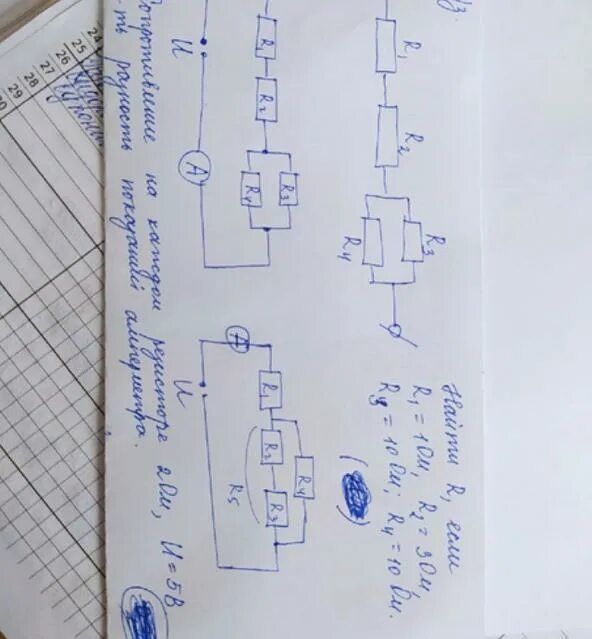 R₁
R₂
R₃
R₄
Найти R, если
R₁ = 1 Ом, R₂ = 3 Ом,
R₃ = 10 Ом; R₄ = 10 Ом.
(
)
U
R₁
R₂
R₃
R₄
A
A
R₁
R₂
R₃
R₄
R₅
U
Сопротивление на каждом резисторе 2 Ом, U = 5В
разность показаний амперметра.
24
25
26
27
28
29